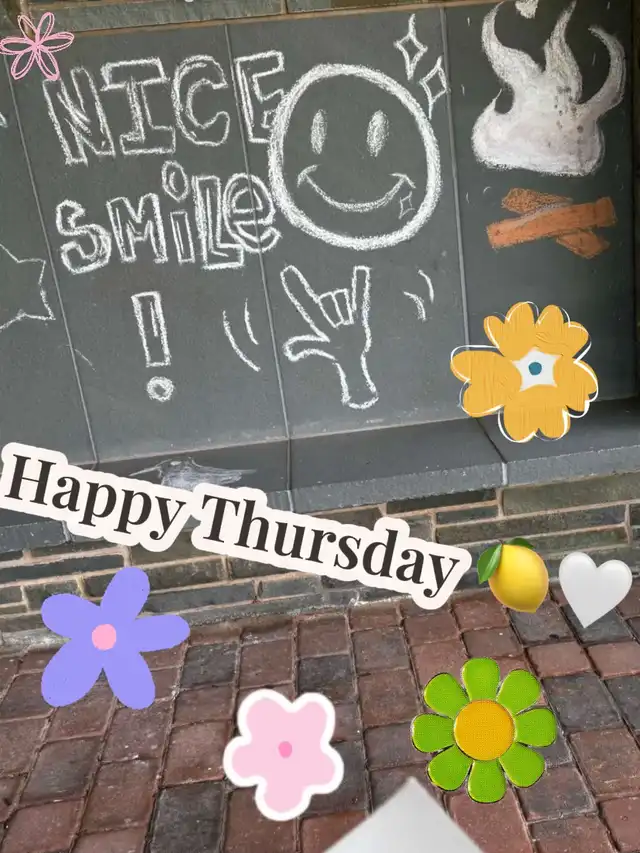 NICE
SMiLe
!
Happy Thursday